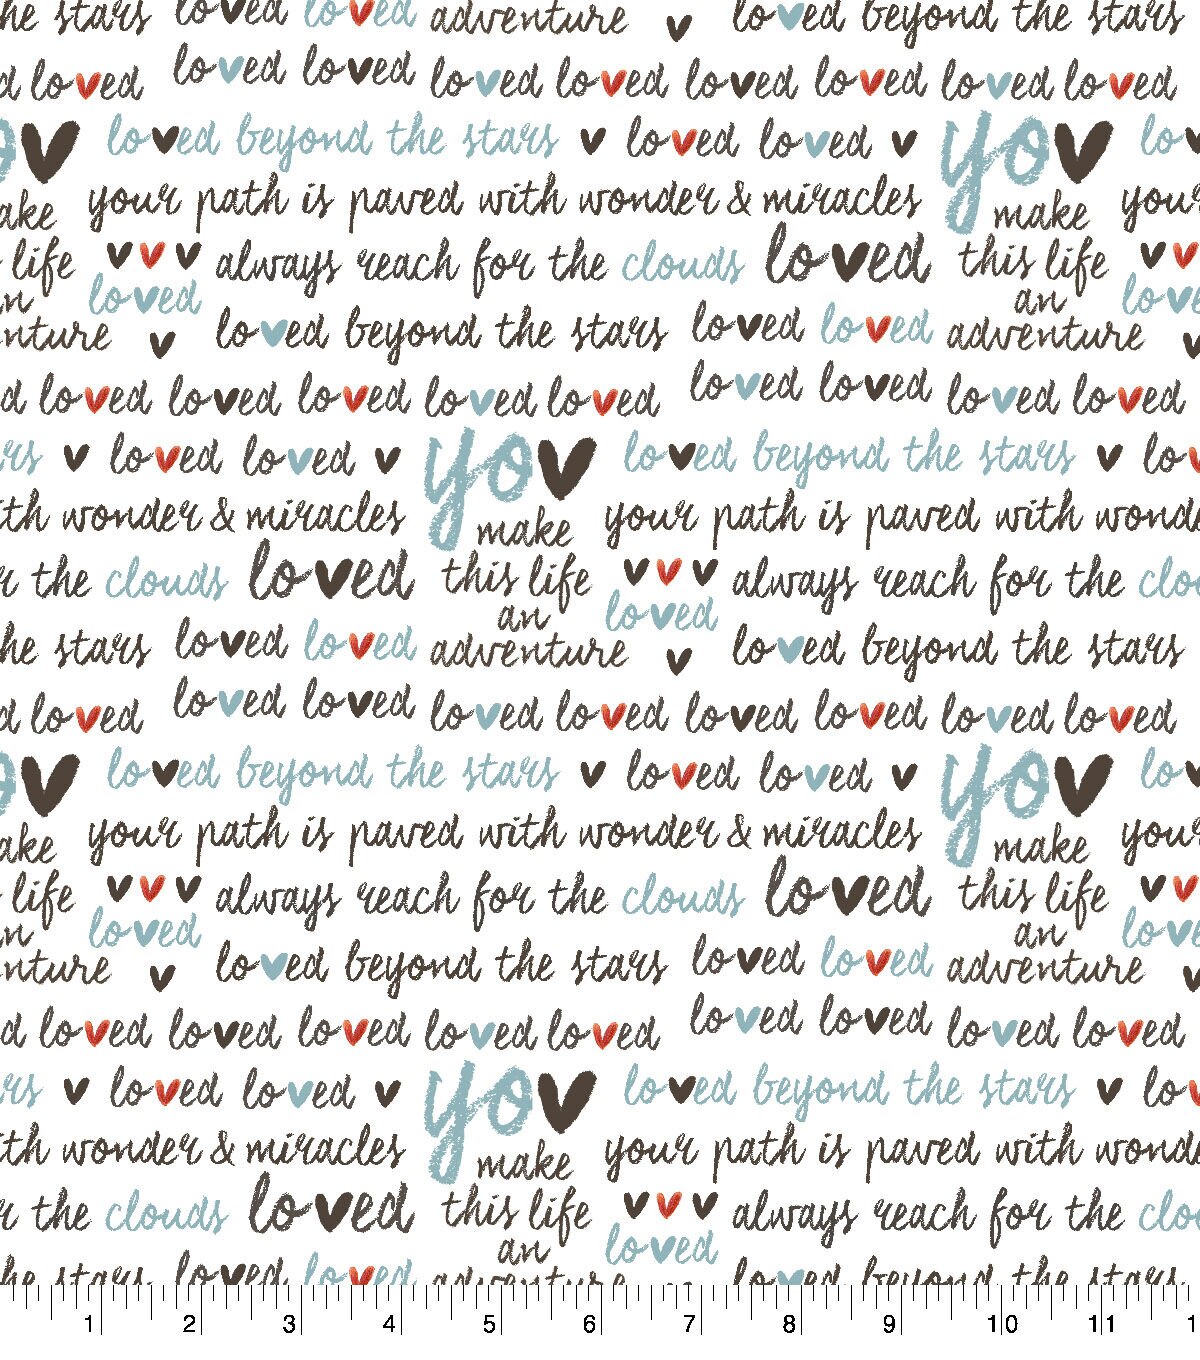 he stars loved loved adventure loved beyond the stars
d loved loved loved loved loved loved loved loved loved
loved beyond the stars loved loved you lo
ake your path is paved with wonder & miracles make your
life always reach for the clouds loved this life
n loved an love
nture loved beyond the stars loved loved adventure
d loved loved loved loved loved loved loved loved loved
rs loved loved you loved beyond the stars lo
th wonder & miracles make your path is paved with wond
r the clouds loved this life always reach for the clo
an loved
he stars loved loved adventure loved beyond the stars
d loved loved loved loved loved loved loved loved loved
loved beyond the stars loved loved you lo
ake your path is paved with wonder & miracles make your
life always reach for the clouds loved this life
n loved an love
nture loved beyond the stars loved loved adventure
d loved loved loved loved loved loved loved loved loved
rs loved loved you loved beyond the stars lo
th wonder & miracles make your path is paved with wond
r the clouds loved this life always reach for the clo
an loved
he stars loved loved adventure loved beyond the stars
1 2 3 4 5 6 7 8 9 10 11 1